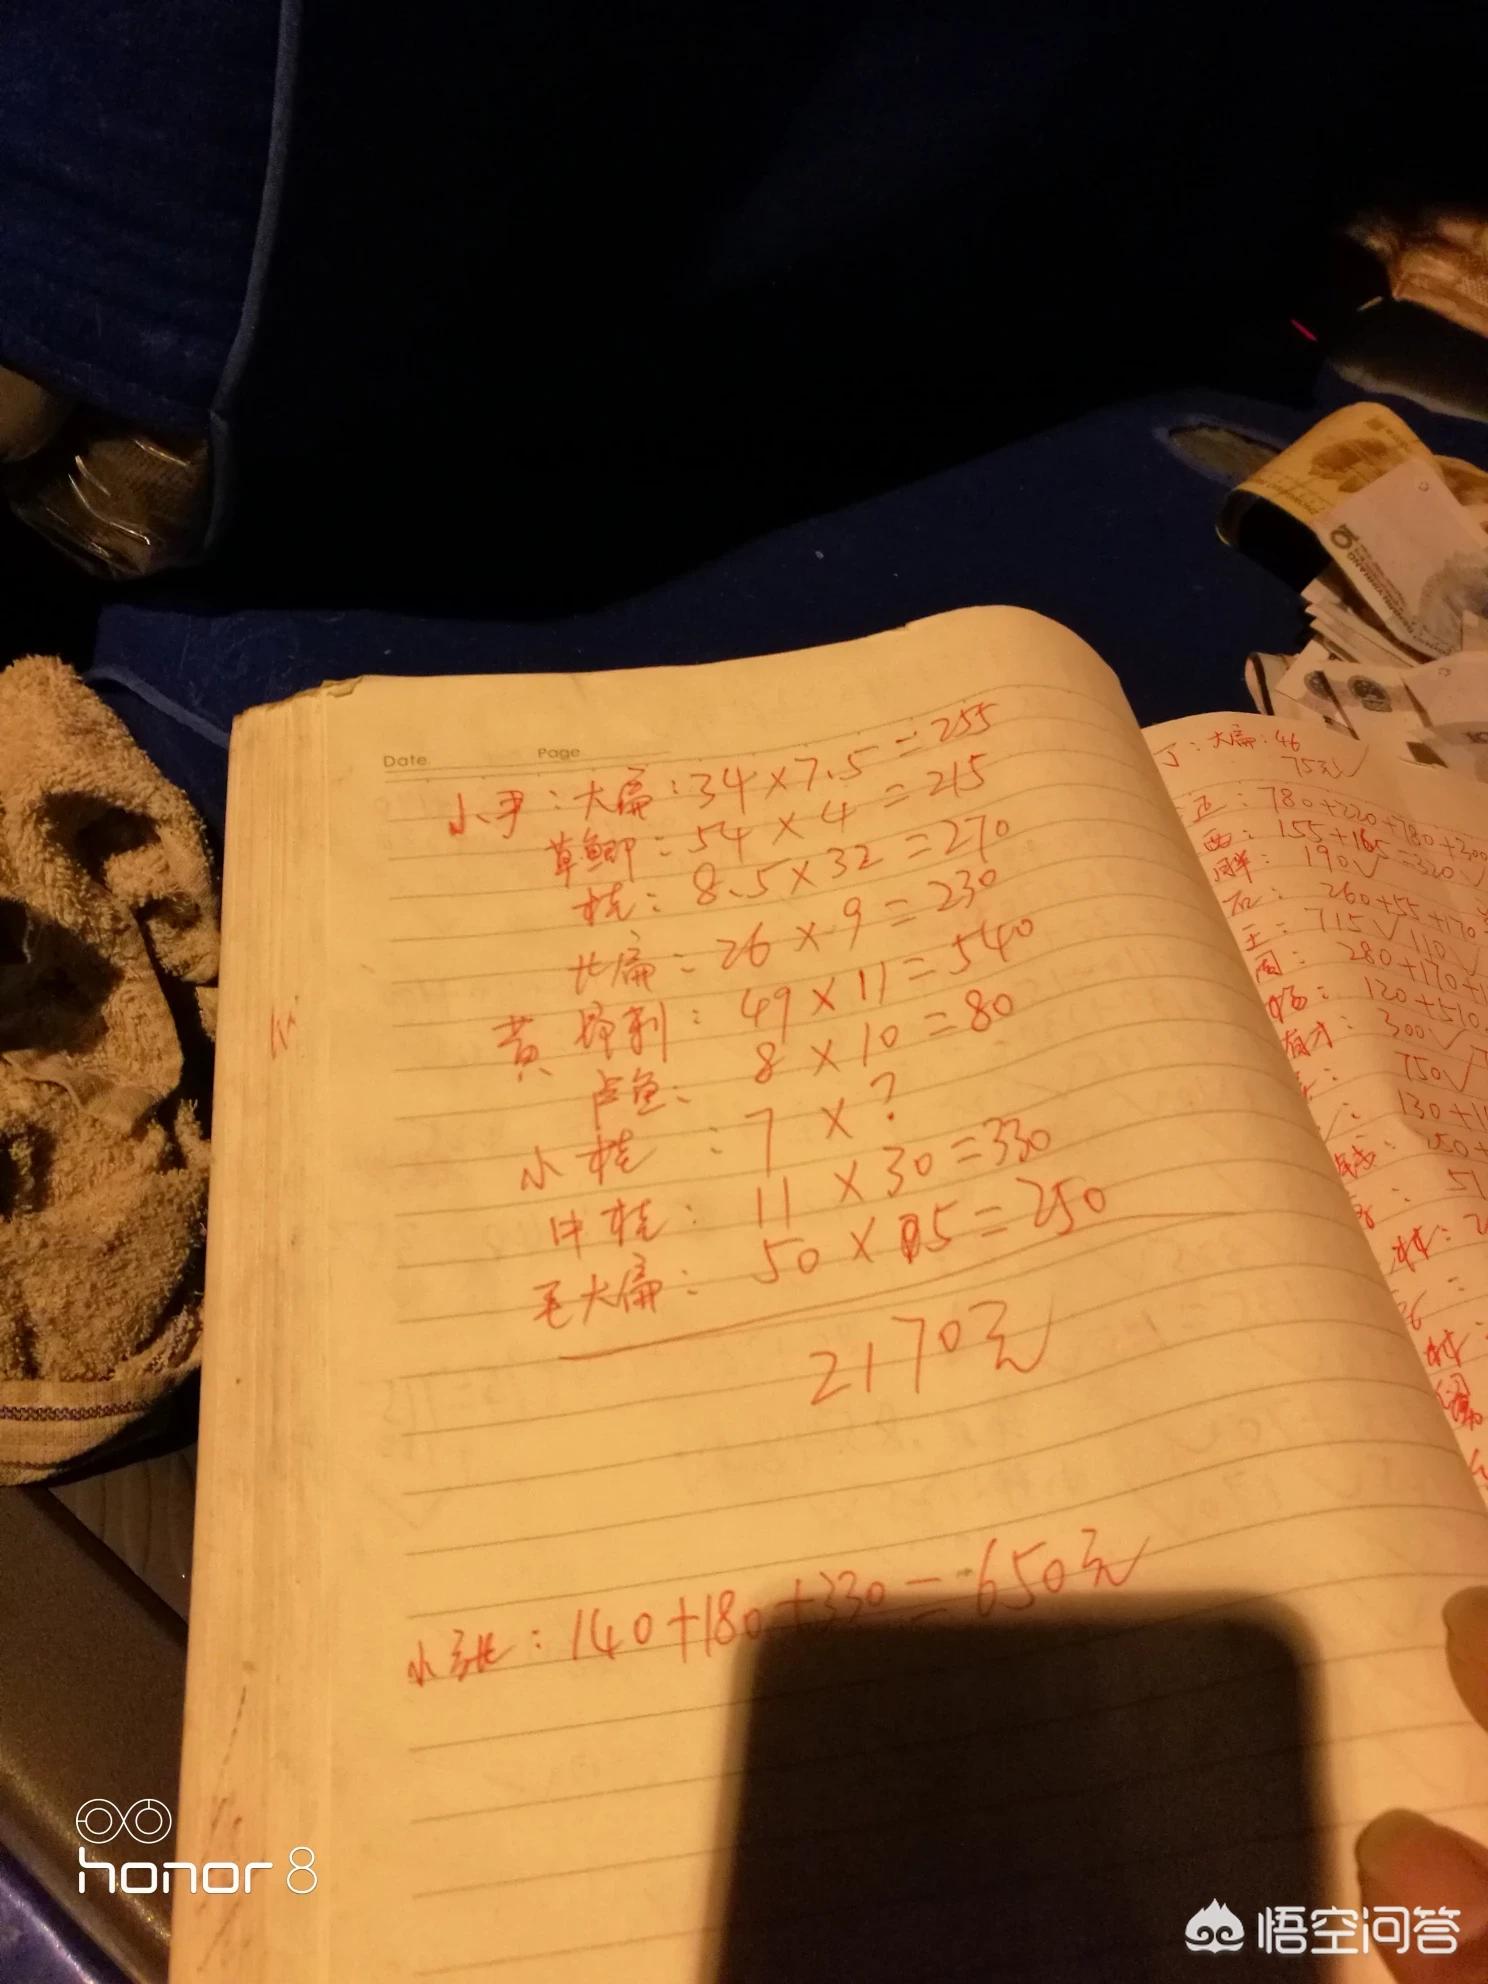 Date
Page
小尹：大扁：34×7.5=255
草鲫：54×4=215
桂：8.5×32=270
比扁：26×9=230
黄 昂刺：49×11=540
卢鱼：8×10=80
小桂：7×?
中桂：11×30=330
毛大扁：50×5=250
2170元
小张：140+180+330=650元
丁：大扁：46
75元√
780+220+780+300
西：155+165=320√
190√
石：260+55+170
王：715√110√
周：280+170+1
杨：120+510
有才：300√
750√
130+11
honor 8
悟空问答